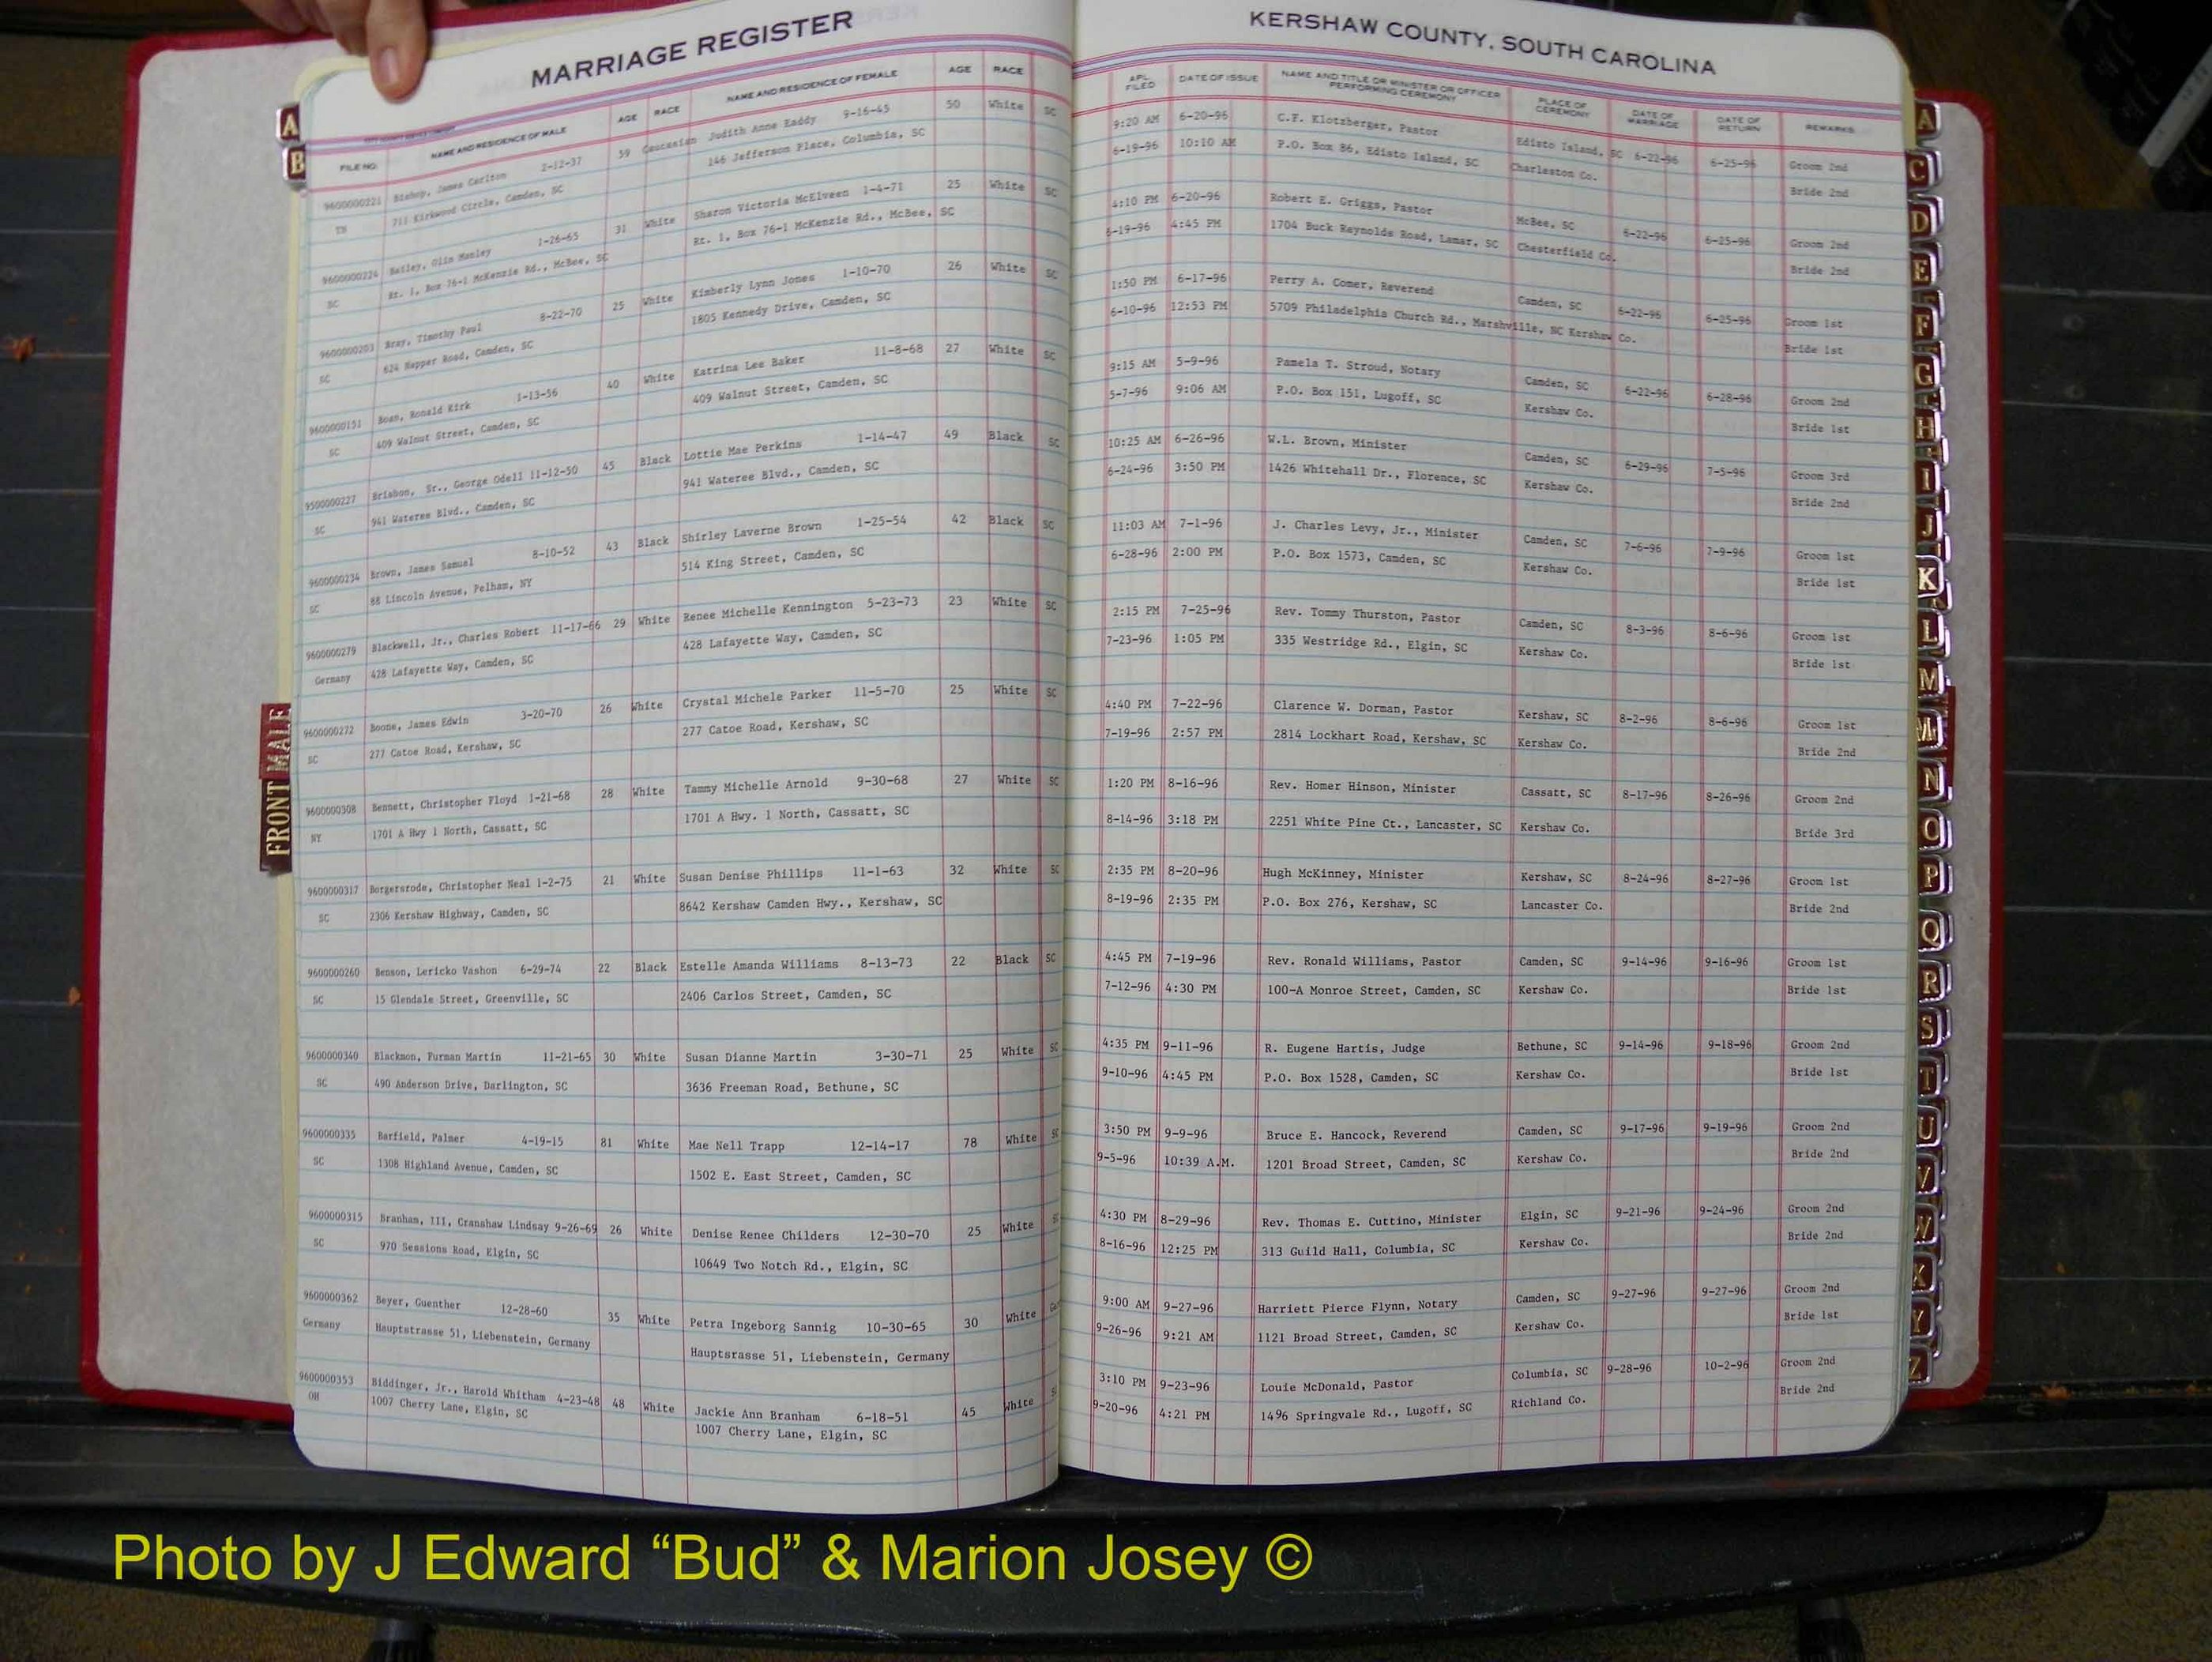 MARRIAGE REGISTER
FILE NO. NAME AND RESIDENCE OF MALE AGE RACE NAME AND RESIDENCE OF FEMALE AGE RACE
9600000221 Bishop, James Carlton 2-12-37 59 Caucasian Judith Anne Eaddy 9-16-45 50 White SC
TN 711 Kirkwood Circle, Camden, SC 146 Jefferson Place, Columbia, SC
9600000224 Bailey, Olin Manley 1-26-65 31 White Sharon Victoria McElveen 1-4-71 25 White SC
SC Rt. 1, Box 76-1 McKenzie Rd., McBee, SC Rt. 1, Box 76-1 McKenzie Rd., McBee, SC
9600000203 Bray, Timothy Paul 8-22-70 25 White Kimberly Lynn Jones 1-10-70 26 White SC
SC 624 Hupper Road, Camden, SC 1805 Kennedy Drive, Camden, SC
9600000151 Boan, Ronald Kirk 1-13-56 40 White Katrina Lee Baker 11-8-68 27 White SC
SC 409 Walnut Street, Camden, SC 409 Walnut Street, Camden, SC
9500000227 Brisbon, Sr., George Odell 11-12-50 45 Black Lottie Mae Perkins 1-14-47 49 Black SC
SC 941 Wateree Blvd., Camden, SC 941 Wateree Blvd., Camden, SC
9600000234 Brown, James Samual 8-10-52 43 Black Shirley Laverne Brown 1-25-54 42 Black SC
SC 88 Lincoln Avenue, Pelham, NY 514 King Street, Camden, SC
9600000279 Blackwell, Jr., Charles Robert 11-17-66 29 White Renee Michelle Kennington 5-23-73 23 White SC
Germany 428 Lafayette Way, Camden, SC 428 Lafayette Way, Camden, SC
9600000272 Boone, James Edwin 3-20-70 26 White Crystal Michele Parker 11-5-70 25 White SC
SC 277 Catoe Road, Kershaw, SC 277 Catoe Road, Kershaw, SC
9600000308 Bennett, Christopher Floyd 1-21-68 28 White Tammy Michelle Arnold 9-30-68 27 White SC
NY 1701 A Hwy 1 North, Cassatt, SC 1701 A Hwy. 1 North, Cassatt, SC
9600000317 Borgersrode, Christopher Neal 1-2-75 21 White Susan Denise Phillips 11-1-63 32 White SC
SC 2306 Kershaw Highway, Camden, SC 8642 Kershaw Camden Hwy., Kershaw, SC
9600000260 Benson, Lericko Vashon 6-29-74 22 Black Estelle Amanda Williams 8-13-73 22 Black SC
SC 15 Glendale Street, Greenville, SC 2406 Carlos Street, Camden, SC
9600000340 Blackmon, Furman Martin 11-21-65 30 White Susan Dianne Martin 3-30-71 25 White SC
SC 490 Anderson Drive, Darlington, SC 3636 Freeman Road, Bethune, SC
9600000335 Barfield, Palmer 4-19-15 81 White Mae Nell Trapp 12-14-17 78 White SC
SC 1308 Highland Avenue, Camden, SC 1502 E. East Street, Camden, SC
9600000315 Branham, III, Cranshaw Lindsay 9-26-69 26 White Denise Renee Childers 12-30-70 25 White
SC 970 Sessions Road, Elgin, SC 10649 Two Notch Rd., Elgin, SC
9600000362 Beyer, Guenther 12-28-60 35 White Petra Ingeborg Sannig 10-30-65 30 White
Germany Hauptstrasse 51, Liebenstein, Germany Hauptsrasse 51, Liebenstein, Germany
9600000353 Biddinger, Jr., Harold Whitham 4-23-48 48 White Jackie Ann Branham 6-18-51 45 White
OH 1007 Cherry Lane, Elgin, SC 1007 Cherry Lane, Elgin, SC
KERSHAW COUNTY, SOUTH CAROLINA
APL. FILED DATE OF ISSUE NAME AND TITLE OR MINISTER OR OFFICER PERFORMING CEREMONY PLACE OF CEREMONY DATE OF MARRIAGE DATE OF RETURN REMARKS
9:20 AM 6-20-96 C.F. Klotzberger, Pastor Edisto Island, SC 6-22-96 6-25-96 Groom 2nd
6-19-96 10:10 AM P.O. Box 86, Edisto Island, SC Charleston Co. Bride 2nd
4:10 PM 6-20-96 Robert E. Griggs, Pastor McBee, SC 6-22-96 6-25-96 Groom 2nd
6-19-96 4:45 PM 1704 Buck Reynolds Road, Lamar, SC Chesterfield Co. Bride 2nd
1:50 PM 6-17-96 Perry A. Comer, Reverend Camden, SC 6-22-96 6-25-96 Groom 1st
6-10-96 12:53 PM 5709 Philadelphia Church Rd., Marshville, NC Kershaw Co. Bride 1st
9:15 AM 5-9-96 Pamela T. Stroud, Notary Camden, SC 6-22-96 6-28-96 Groom 2nd
5-7-96 9:06 AM P.O. Box 151, Lugoff, SC Kershaw Co. Bride 1st
10:25 AM 6-26-96 W.L. Brown, Minister Camden, SC 6-29-96 7-5-96 Groom 3rd
6-24-96 3:50 PM 1426 Whitehall Dr., Florence, SC Kershaw Co. Bride 2nd
11:03 AM 7-1-96 J. Charles Levy, Jr., Minister Camden, SC 7-6-96 7-9-96 Groom 1st
6-28-96 2:00 PM P.O. Box 1573, Camden, SC Kershaw Co. Bride 1st
2:15 PM 7-25-96 Rev. Tommy Thurston, Pastor Camden, SC 8-3-96 8-6-96 Groom 1st
7-23-96 1:05 PM 335 Westridge Rd., Elgin, SC Kershaw Co. Bride 1st
4:40 PM 7-22-96 Clarence W. Dorman, Pastor Kershaw, SC 8-2-96 8-6-96 Groom 1st
7-19-96 2:57 PM 2814 Lockhart Road, Kershaw, SC Kershaw Co. Bride 2nd
1:20 PM 8-16-96 Rev. Homer Hinson, Minister Cassatt, SC 8-17-96 8-26-96 Groom 2nd
8-14-96 3:18 PM 2251 White Pine Ct., Lancaster, SC Kershaw Co. Bride 3rd
2:35 PM 8-20-96 Hugh McKinney, Minister Kershaw, SC 8-24-96 8-27-96 Groom 1st
8-19-96 2:35 PM P.O. Box 276, Kershaw, SC Lancaster Co. Bride 2nd
4:45 PM 7-19-96 Rev. Ronald Williams, Pastor Camden, SC 9-14-96 9-16-96 Groom 1st
7-12-96 4:30 PM 100-A Monroe Street, Camden, SC Kershaw Co. Bride 1st
4:35 PM 9-11-96 R. Eugene Hartis, Judge Bethune, SC 9-14-96 9-18-96 Groom 2nd
9-10-96 4:45 PM P.O. Box 1528, Camden, SC Kershaw Co. Bride 1st
3:50 PM 9-9-96 Bruce E. Hancock, Reverend Camden, SC 9-17-96 9-19-96 Groom 2nd
9-5-96 10:39 A.M. 1201 Broad Street, Camden, SC Kershaw Co. Bride 2nd
4:30 PM 8-29-96 Rev. Thomas E. Cuttino, Minister Elgin, SC 9-21-96 9-24-96 Groom 2nd
8-16-96 12:25 PM 313 Guild Hall, Columbia, SC Kershaw Co. Bride 2nd
9:00 AM 9-27-96 Harriett Pierce Flynn, Notary Camden, SC 9-27-96 9-27-96 Groom 2nd
9-26-96 9:21 AM 1121 Broad Street, Camden, SC Kershaw Co. Bride 1st
3:10 PM 9-23-96 Louie McDonald, Pastor Columbia, SC 9-28-96 10-2-96 Groom 2nd
9-20-96 4:21 PM 1496 Springvale Rd., Lugoff, SC Richland Co. Bride 2nd
A
B
FRONT MALE
A
C
D
E
F
G
H
I
J
K
L
M
M
N
O
P
Q
R
S
T
U
V
W
X
Y
Z
Photo by J Edward “Bud” & Marion Josey ©